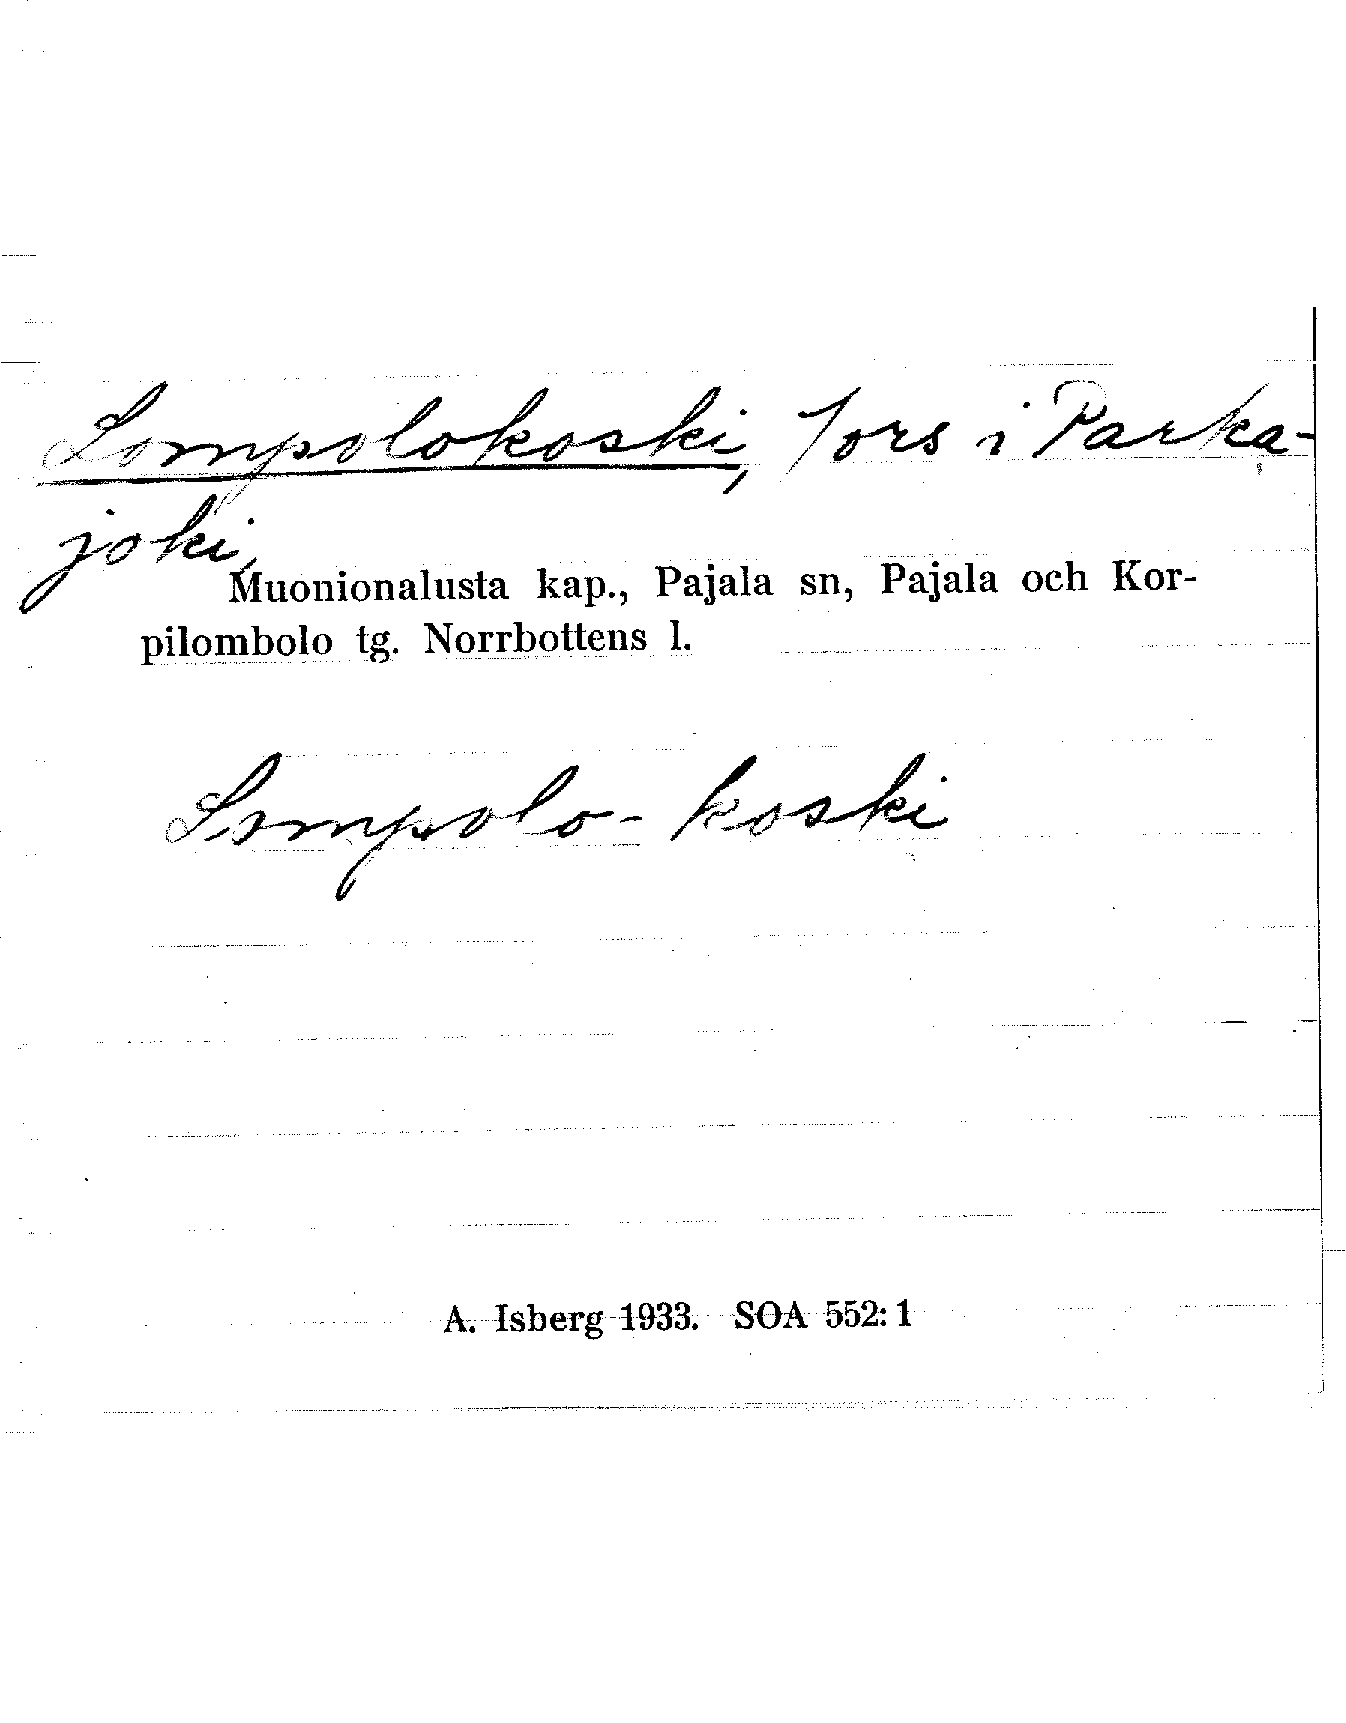 Lompolokoski, fors i Parka-
joki,
Muonionalusta kap., Pajala sn, Pajala och Kor-
pilombolo tg. Norrbottens l.
Lompolo-koski
A. Isberg 1933. SOA 552: 1